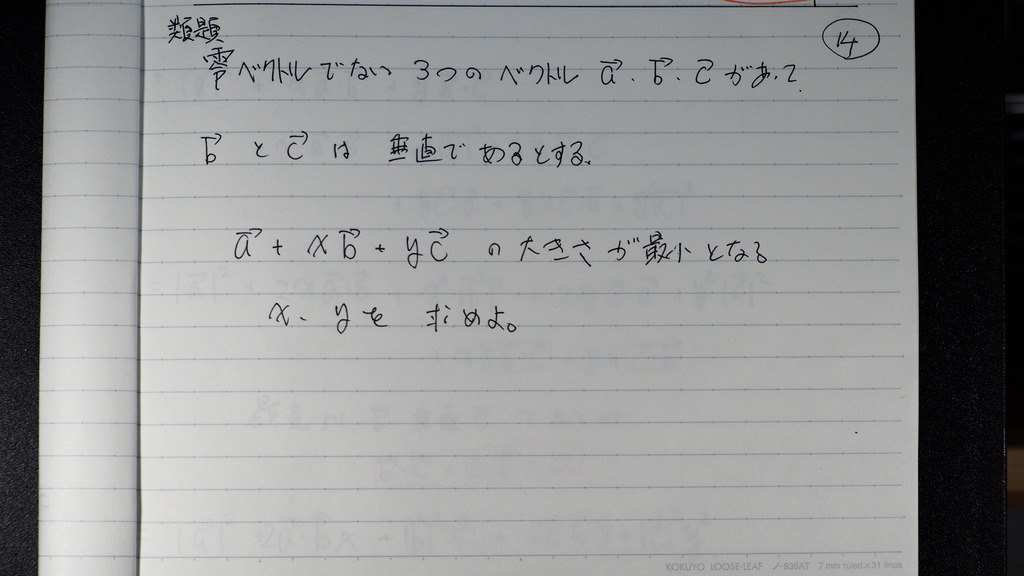 類題
⑭
零ベクトルでない 3つの ベクトル a→、b→、c→があって、
b→ と c→ は 垂直で あるとする。
a→ + xb→ + yc→ の 大きさ が 最小 となる
x、yを 求めよ。
KOKUYO LOOSE-LEAF ノ-836AT 7 mm ruled×31 lines